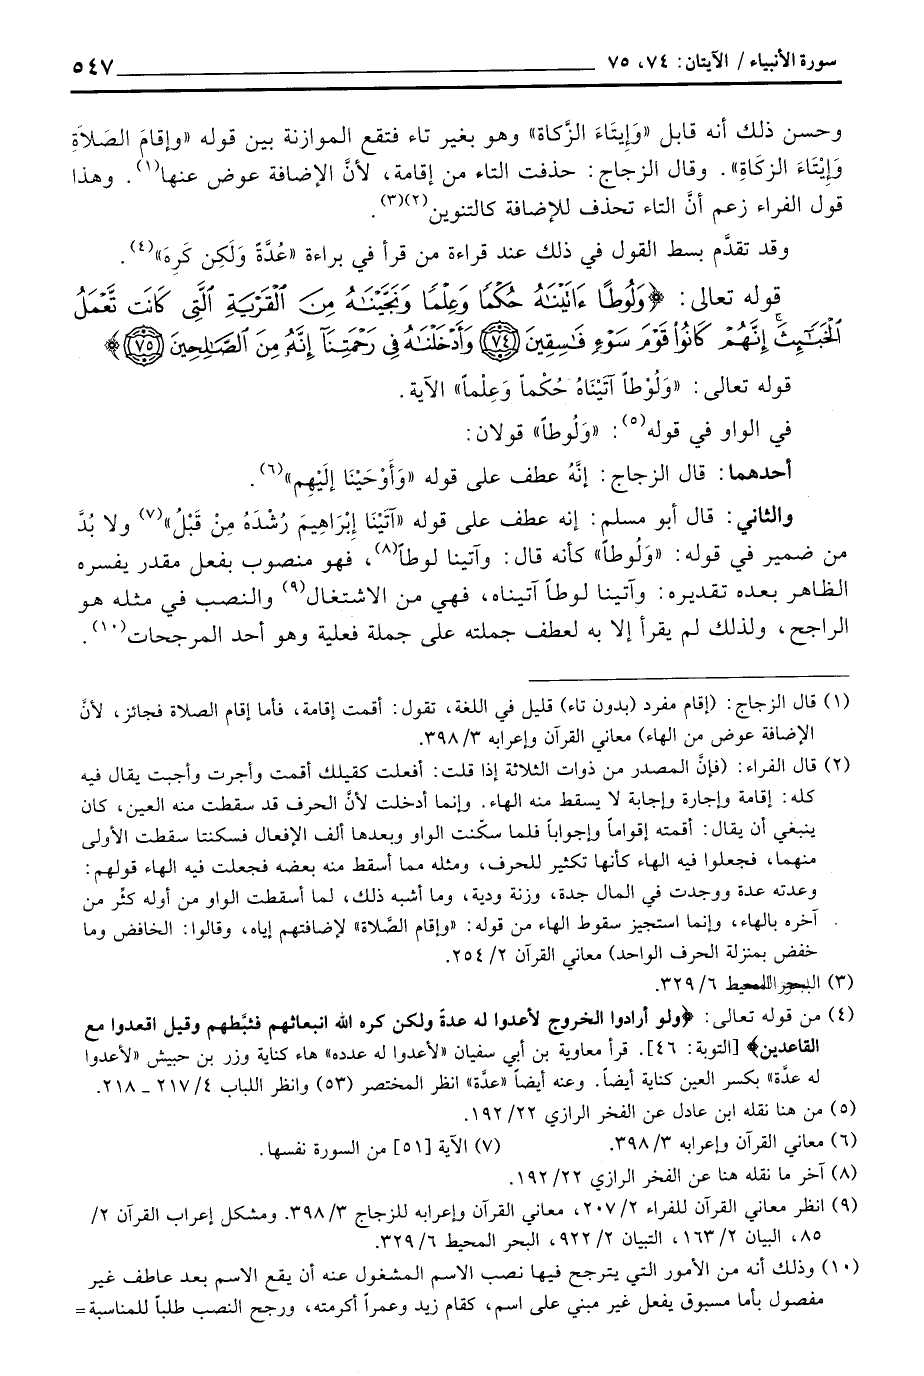 سورة الأنبياء / الآيتان: ٧٤، ٧٥ ٥٤٧
وحسن ذلك أنه قابل «وَإِيتَاءَ الزَّكاة» وهو بغير تاء فتقع الموازنة بين قوله «وإقامَ الصَلاَةِ
وَإِيْتَاءَ الزكَاةِ». وقال الزجاج: حذفت التاء من إقامة، لأنَّ الإضافة عوض عنها(١). وهذا
قول الفراء زعم أنَّ التاء تحذف للإضافة كالتنوين(٢)(٣).
وقد تقدَّم بسط القول في ذلك عند قراءة من قرأ في براءة «عُدَّةً وَلَكِن كَرِهَ»(٤).
قوله تعالى: ﴿وَلُوطًا ءَاتَيْنَـٰهُ حُكْمًا وَعِلْمًا وَنَجَّيْنَـٰهُ مِنَ ٱلْقَرْيَةِ ٱلَّتِى كَانَت تَّعْمَلُ
ٱلْخَبَـٰٓئِثَ إِنَّهُمْ كَانُوا۟ قَوْمَ سَوْءٍ فَـٰسِقِينَ ﴿٧٤﴾ وَأَدْخَلْنَـٰهُ فِى رَحْمَتِنَآ إِنَّهُۥ مِنَ ٱلصَّـٰلِحِينَ ﴿٧٥﴾﴾
قوله تعالى: «وَلُوْطاً آتَيْنَاهُ حُكْماً وَعِلْماً» الآية.
في الواو في قوله(٥): «وَلُوطاً» قولان:
أحدهما: قال الزجاج: إنَّهُ عطف على قوله «وَأَوْحَيْنَا إلَيْهِم»(٦).
والثاني: قال أبو مسلم: إنه عطف على قوله «آتَيْنَا إبْرَاهِيمَ رُشْدَهُ مِنْ قَبْلُ»(٧) ولا بُدَّ
من ضمير في قوله: «وَلُوطاً» كأنه قال: وآتينا لوطاً(٨)، فهو منصوب بفعل مقدر يفسره
الظاهر بعده تقديره: وآتينا لوطاً آتيناه، فهي من الاشتغال(٩) والنصب في مثله هو
الراجح، ولذلك لم يقرأ إلا به لعطف جملته على جملة فعلية وهو أحد المرجحات(١٠).
(١) قال الزجاج: (إقام مفرد (بدون تاء) قليل في اللغة، تقول: أقمت إقامة، فأما إقام الصلاة فجائز، لأنَّ
الإضافة عوض من الهاء) معاني القرآن وإعرابه ٣/ ٣٩٨.
(٢) قال الفراء: (فإنَّ المصدر من ذوات الثلاثة إذا قلت: أفعلت كقيلك أقمت وأجرت وأجبت يقال فيه
كله: إقامة وإجارة وإجابة لا يسقط منه الهاء. وإنما أدخلت لأنَّ الحرف قد سقطت منه العين، كان
ينبغي أن يقال: أقمته إقواماً وإجواباً فلما سكّنت الواو وبعدها ألف الإفعال فسكنتا سقطت الأولى
منهما، فجعلوا فيه الهاء كأنها تكثير للحرف، ومثله مما أسقط منه بعضه فجعلت فيه الهاء قولهم:
وعدته عدة ووجدت في المال جدة، وزنة ودية، وما أشبه ذلك، لما أسقطت الواو من أوله كثِّر من
آخره بالهاء، وإنما استجيز سقوط الهاء من قوله: «وإقام الصَّلاة» لإضافتهم إياه، وقالوا: الخافض وما
خفض بمنزلة الحرف الواحد) معاني القرآن ٢/ ٢٥٤.
(٣) البحر المحيط ٦/ ٣٢٩.
(٤) من قوله تعالى: ﴿ولو أرادوا الخروج لأعدوا له عدةً ولكن كره الله انبعاثهم فثبَّطهم وقيل اقعدوا مع
القاعدين﴾ [التوبة: ٤٦]. قرأ معاوية بن أبي سفيان «لأعدوا له عدده» هاء كناية وزر بن حبيش «لأعدوا
له عدَّة» بكسر العين كناية أيضاً. وعنه أيضاً «عدَّة» انظر المختصر (٥٣) وانظر اللباب ٤/ ٢١٧ ـ ٢١٨.
(٥) من هنا نقله ابن عادل عن الفخر الرازي ٢٢/ ١٩٢.
(٦) معاني القرآن وإعرابه ٣/ ٣٩٨. (٧) الآية [٥١] من السورة نفسها.
(٨) آخر ما نقله هنا عن الفخر الرازي ٢٢/ ١٩٢.
(٩) انظر معاني القرآن للفراء ٢/ ٢٠٧، معاني القرآن وإعرابه للزجاج ٣/ ٣٩٨. ومشكل إعراب القرآن ٢/
٨٥، البيان ٢/ ١٦٣، التبيان ٢/ ٩٢٢، البحر المحيط ٦/ ٣٢٩.
(١٠) وذلك أنه من الأمور التي يترجح فيها نصب الاسم المشغول عنه أن يقع الاسم بعد عاطف غير
مفصول بأما مسبوق بفعل غير مبني على اسم، كقام زيد وعمراً أكرمته، ورجح النصب طلباً للمناسبة =